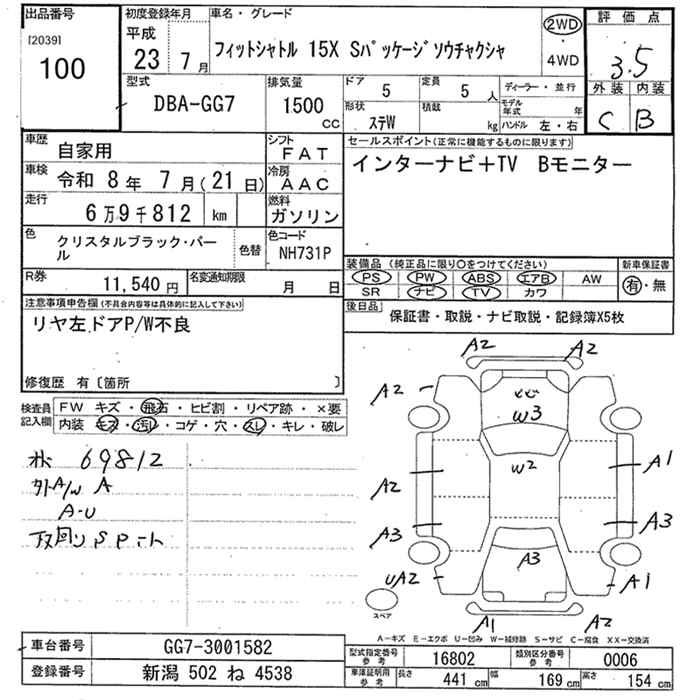 出品番号
[2039]
100
初度登録年月
平成
23 7月
車名・グレード
フィットシャトル 15X Sパッケージソウチャクシャ
2WD
・
4WD
評価点
3.5
外装 内装
C B
型式
DBA-GG7
排気量
1500
CC
ドア
5
定員
5 人
形状
ステW
積載
kg
ディーラー・並行
モデル年式 年
ハンドル 左・右
車歴
自家用
シフト
FAT
車検
令和 8年 7月(21日)
冷房
AAC
走行
6万9千812 km
燃料
ガソリン
色
クリスタルブラック・パール
色替
色コード
NH731P
R券
11,540 円
名変通知期限
月 日
セールスポイント(正常に機能するものに限ります)
インターナビ+TV Bモニター
装備品 (純正品に限り○をつけてください)
PS PW ABS エアB AW
SR ナビ TV カワ
新車保証書
有・無
後日品
保証書・取説・ナビ取説・記録簿X5枚
注意事項申告欄(不具合内容等は具体的に記入して下さい)
リヤ左ドアP/W不良
修復歴 有〔箇所 〕
検査員記入欄
FW キズ・飛石・ヒビ割・リペア跡・×要
内装 キズ・汚レ・コゲ・穴・スレ・キレ・破レ
69812
外A/W A
A-U
下回りSPート
A2
A2
A2
A2
W3
W2
A1
A2
A3
A3
A3
UA2
A1
A1
A2
スペア
A-キズ E-エクボ U-凹み W-補修跡 S-サビ C-腐食 XX-交換済
車台番号
GG7-3001582
登録番号
新潟 502 ね 4538
型式指定番号
参考
16802
類別区分番号
参考
0006
車庫証明用
参考
長さ
441 cm
幅
169 cm
高さ
154 cm